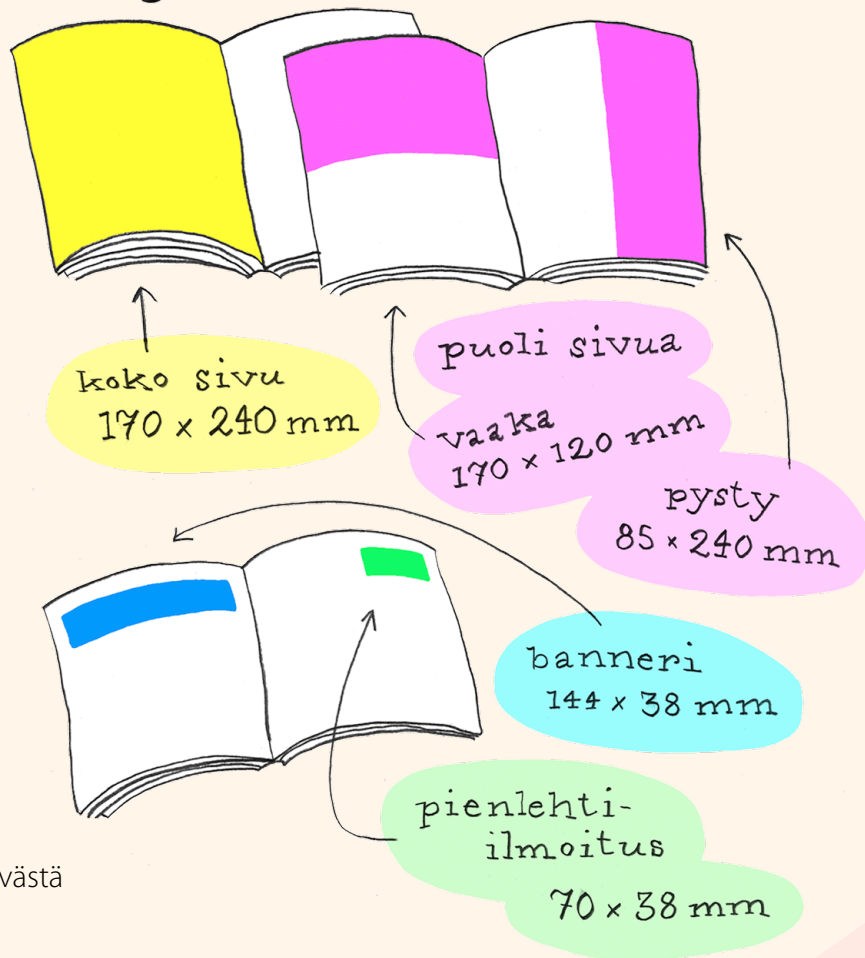 koko sivu
170 x 240 mm
puoli sivua
vaaka
170 x 120 mm
pysty
85 x 240 mm
banneri
144 x 38 mm
pienlehti-
ilmoitus
70 x 38 mm
västä